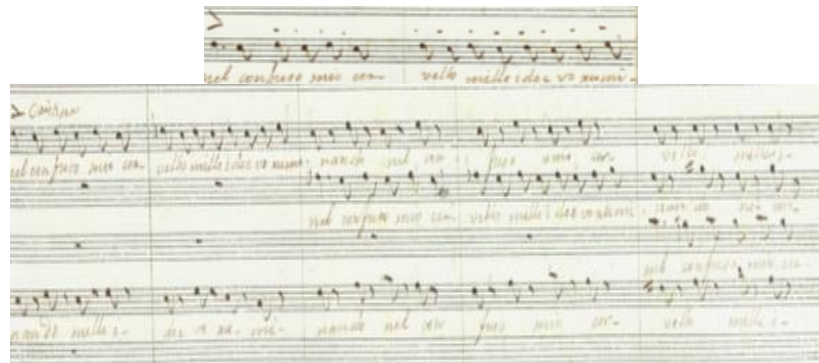 nel confuso mio cer- vello mille idee vo rumi-
nel confuso mio cer- vello mille idee vo rumi- nando nel con- fuso mio cer- vello mille i-
nel confuso mio cer- vello mille idee vo rumi- nando nel con-
nel confuso mio cer-
nando mille i- dee vo ru- mi- nando nel con- fuso mio cer- vello mille i-